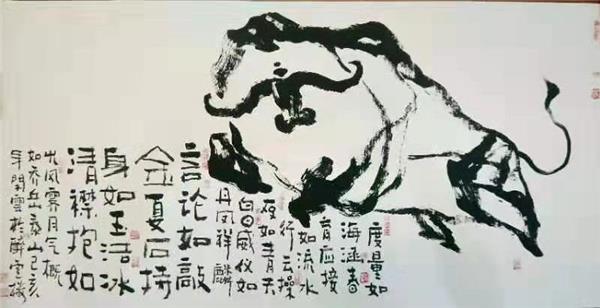 度量如
海涵春
育应接
如流水
行云操
存如青天
白日威仪如
丹凤祥麟
言论如敲
金戛石持
身如玉洁冰
清襟抱如
光风霁月气概
如乔岳泰山己亥
年開雲於醉雲楼